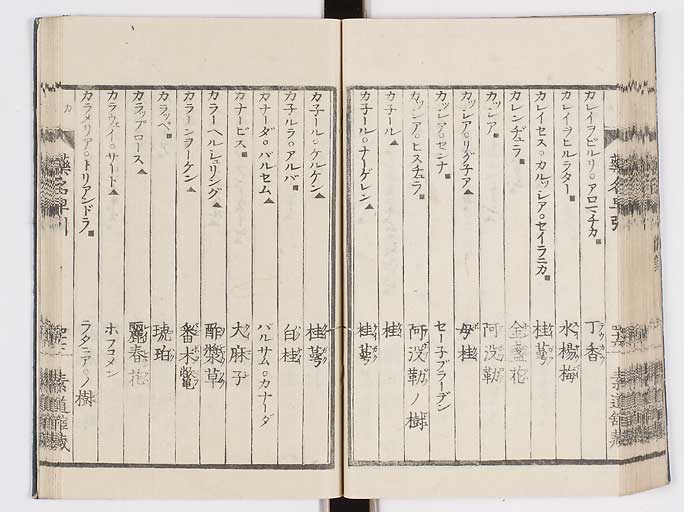 カレイヲビルリ。アロマチカ■ 丁香
カレイヲヒルラター■ 水楊梅
カレイセス。カルッシア。セイラニカ■ 桂蕚
カレンヂュラ■ 金盞花
カッシア■ 阿没勒
カッシア。リグ子ア▲ 母桂
カッシア。センナ■ セー子ブラーデン
カッシア。ヒスチュラ■ 阿没勒ノ樹
カ子ール▲ 桂
カ子ール。ナーゲレン▲ 桂蕚
カ子ール。ケルケン▲ 桂蕚
カ子ルラ。アルバ■ 白桂
カナーダ。バルセム▲ バルサム。カナーダ
カナービス■ 大麻子
カラーヘル。シュリング▲ 酢漿草
カラーンヲーケン▲
カラッベ■ 琥珀
カラップロース▲ 麗春花
カラウェイ。サード▲ ホフコメン
カラメリア。トリアンドラ■ ラタニア。ノ樹
カ
素道館蔵